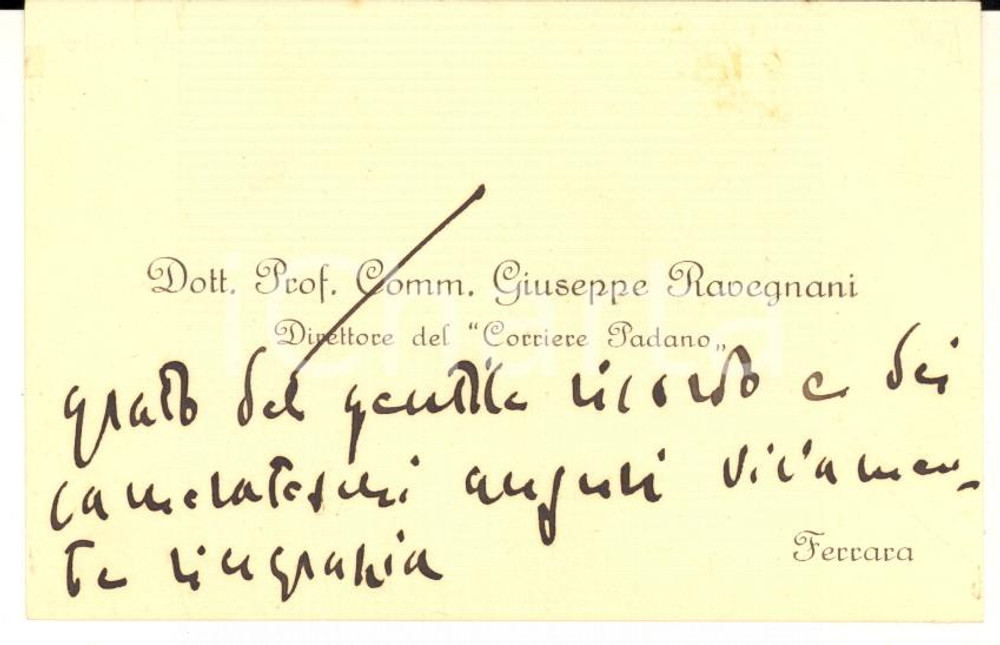 Dott. Prof. Comm. Giuseppe Ravegnani
Direttore del “Corriere Padano„
grato del gentile ricordo e dei
camerateschi auguri vivamen-
te ringrazia
Ferrara